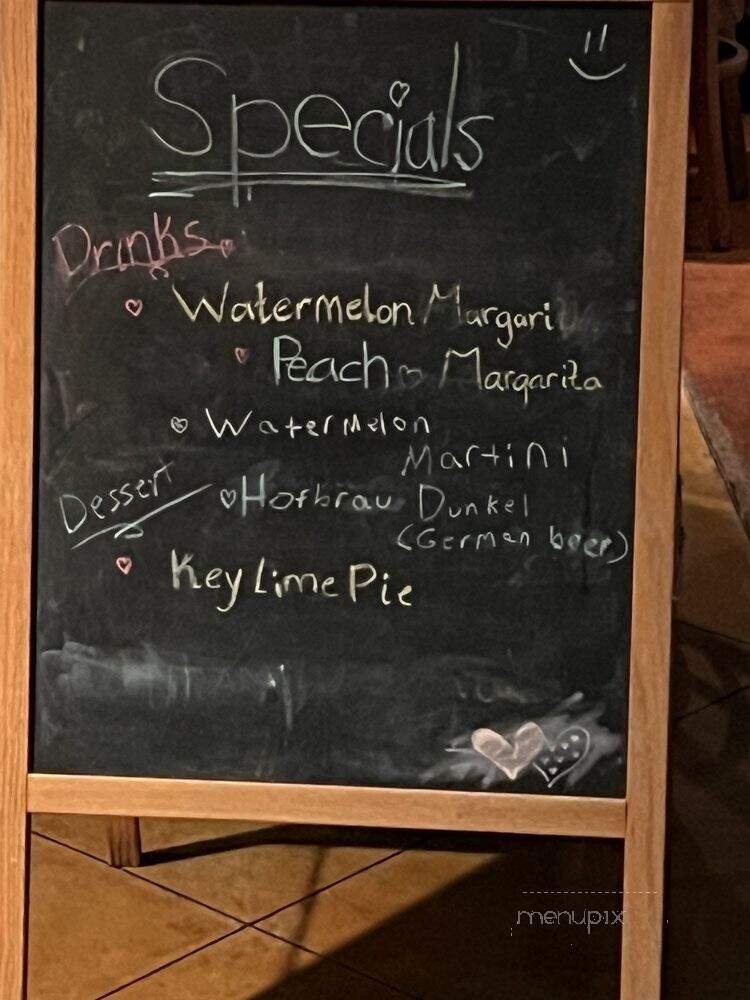 Specials
Drinks
Watermelon Margari
Peach Margarita
Watermelon
Martini
Dessert
Hofbrau Dunkel
(German beer)
Key Lime Pie
menupix